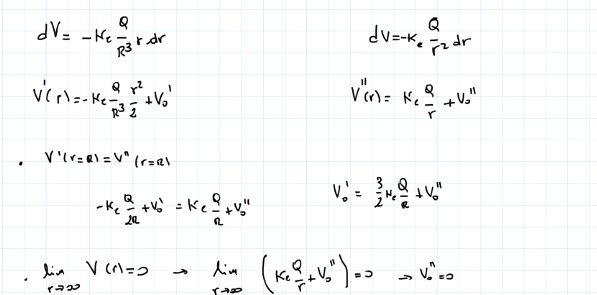 dV = -Kc Q/R³ r dr
dV = -Kc Q/r² dr
V'(r) = -Kc Q/R³ r²/2 + V₀'
V''(r) = Kc Q/r + V₀''
. V'(r=R) = V''(r=R)
-Kc Q/2R + V₀' = Kc Q/R + V₀''
V₀' = 3/2 Kc Q/R + V₀''
. lim r→∞ V(r) = 0 → lim r→∞ (Kc Q/r + V₀'') = 0 → V₀'' = 0